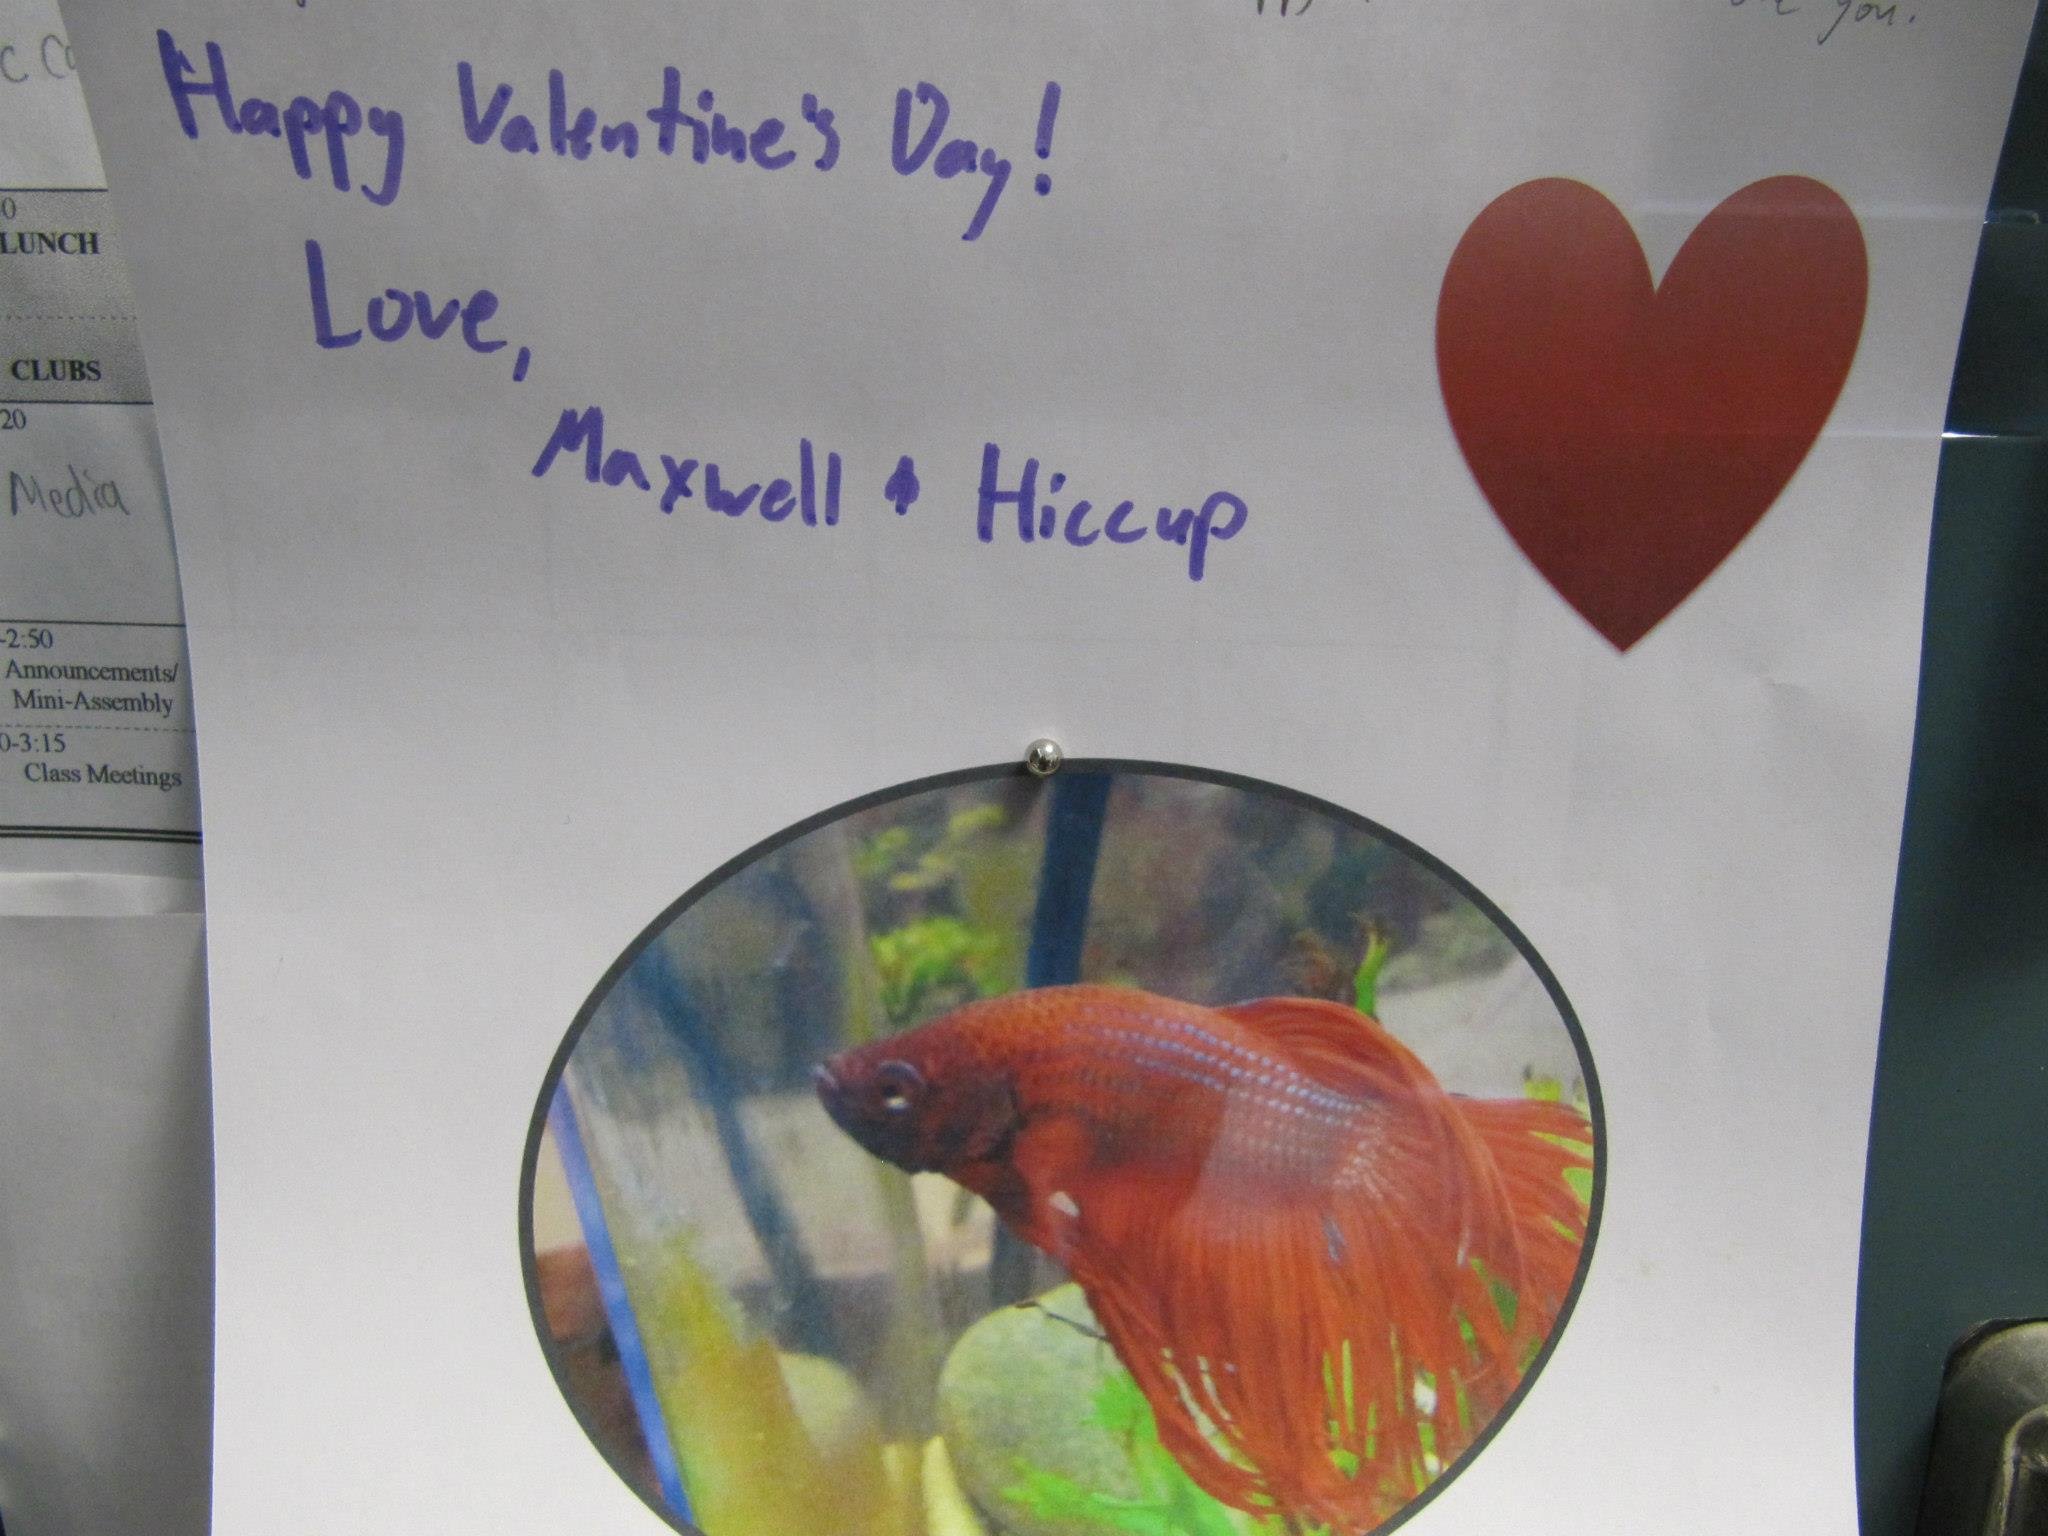 you.
Happy Valentine's Day!
Love,
Maxwell & Hiccup
LUNCH
CLUBS
20
Media
-2:50
Announcements/
Mini-Assembly
0-3:15
Class Meetings